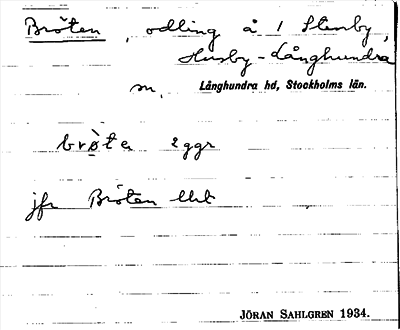 Bröten, odling å 1 Stenby,
Husby-Långhundra
sn, Långhundra hd, Stockholms län.
brø̀ten 2 ggr
jfr Bröten Ukt
JÖRAN SAHLGREN 1934.